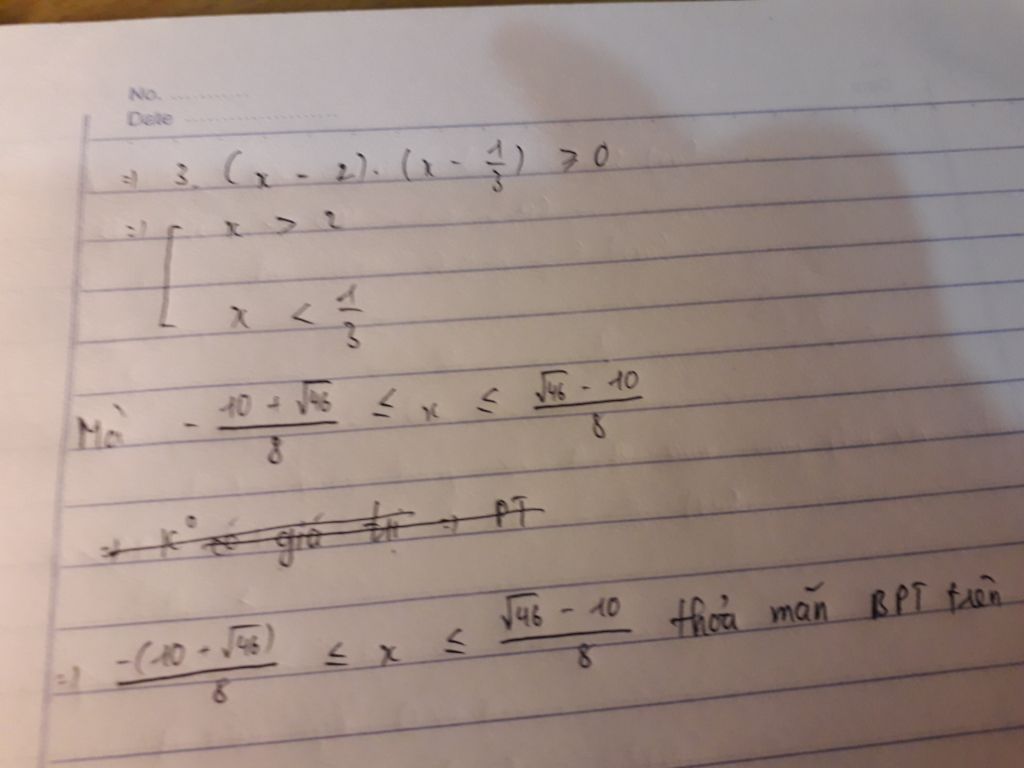 No. ............
Date ........................
=> 3. (x - 2). (x - 1/3) ⩾ 0
=> [ x > 2
x < 1/3
Mà - (10 + √46)/8 ≤ x ≤ (√46 - 10)/8
=> K° có giá trị => PT
=> (-(10 - √46))/8 ≤ x ≤ (√46 - 10)/8 thoả mãn BPT trên